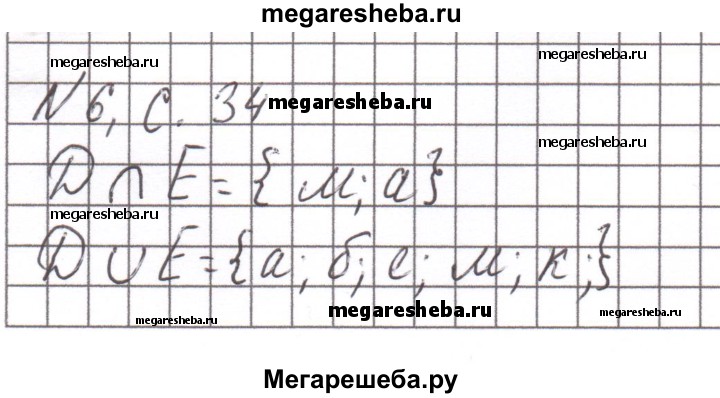 megaresheba.ru
megaresheba.ru
megaresheba.ru
N 6, с. 34
megaresheba.ru
megaresheba.ru
D ∩ E = { м; а}
megaresheba.ru
D ∪ E = {а; б; с; м; к;}
megaresheba.ru
megaresheba.ru
megaresheba.ru
Мегарешеба.ру